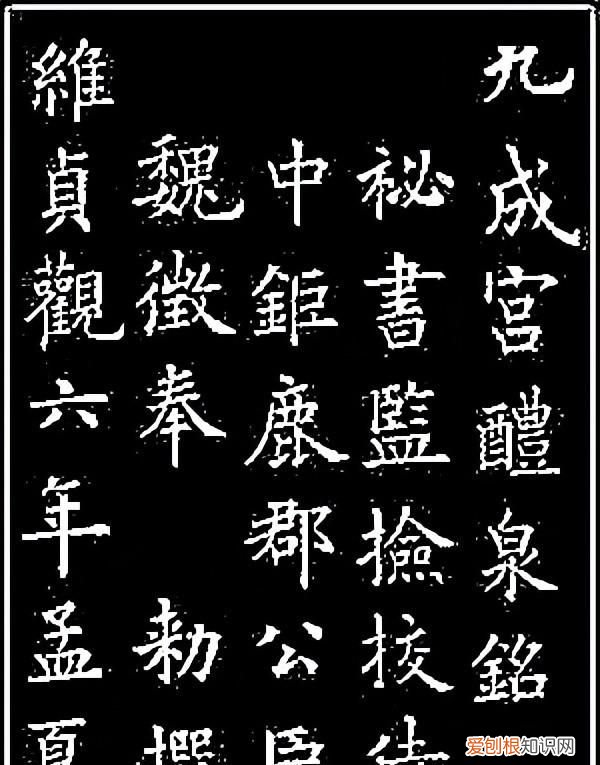 九成宮醴泉銘
祕書監撿挍侍
中鉅鹿郡公臣
魏徵奉 勅撰
維貞觀六年孟夏
爱刨根知识网